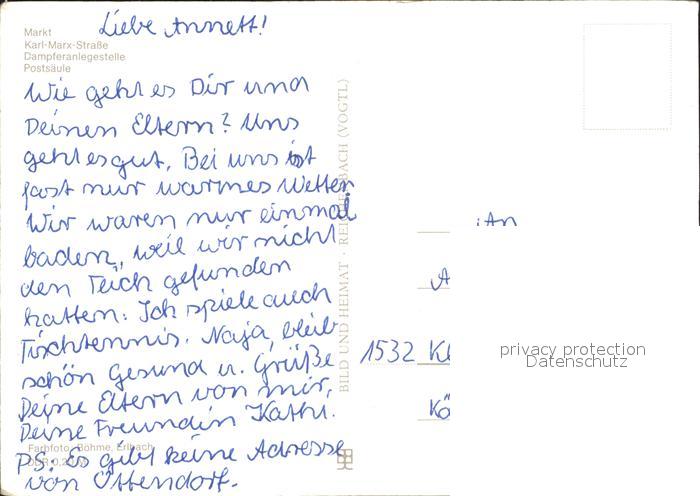 Markt
Karl-Marx-Straße
Dampferanlegestelle
Postsäule
Liebe Annett!
Wie geht es Dir und
Deinen Eltern? Uns
geht es gut. Bei uns ist
fast nur warmes Wetter
Wir waren nur einmal
baden, weil wir nicht
den Teich gefunden
hatten. Ich spiele auch
Tischtennis. Naja, bleib
schön Gesund u. Grüße
Deine Eltern von mir,
Deine Freundin Kathi.
PS: Es gibt keine Adresse
von Ottendorf.
Farbfoto: Böhme, Erlbach
BILD UND HEIMAT · REICHENBACH (VOGTL)
An
A
1532 Kl
Kö
privacy protection
Datenschutz